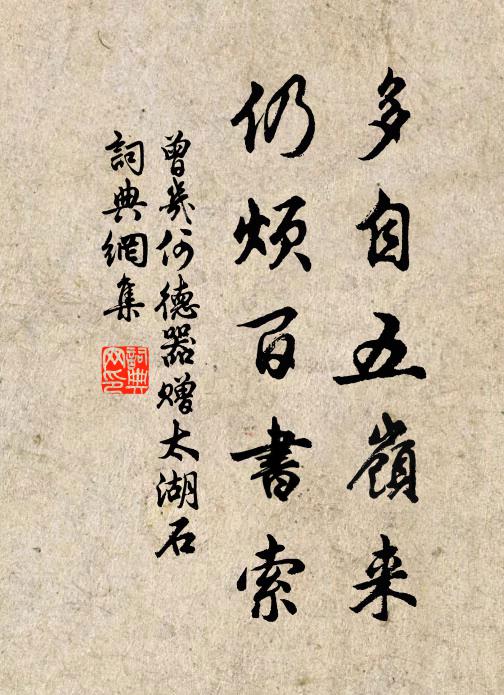 多自五嶺来
仍煩百書索
曾幾何德器贈太湖石
詞典網集
詞典網印